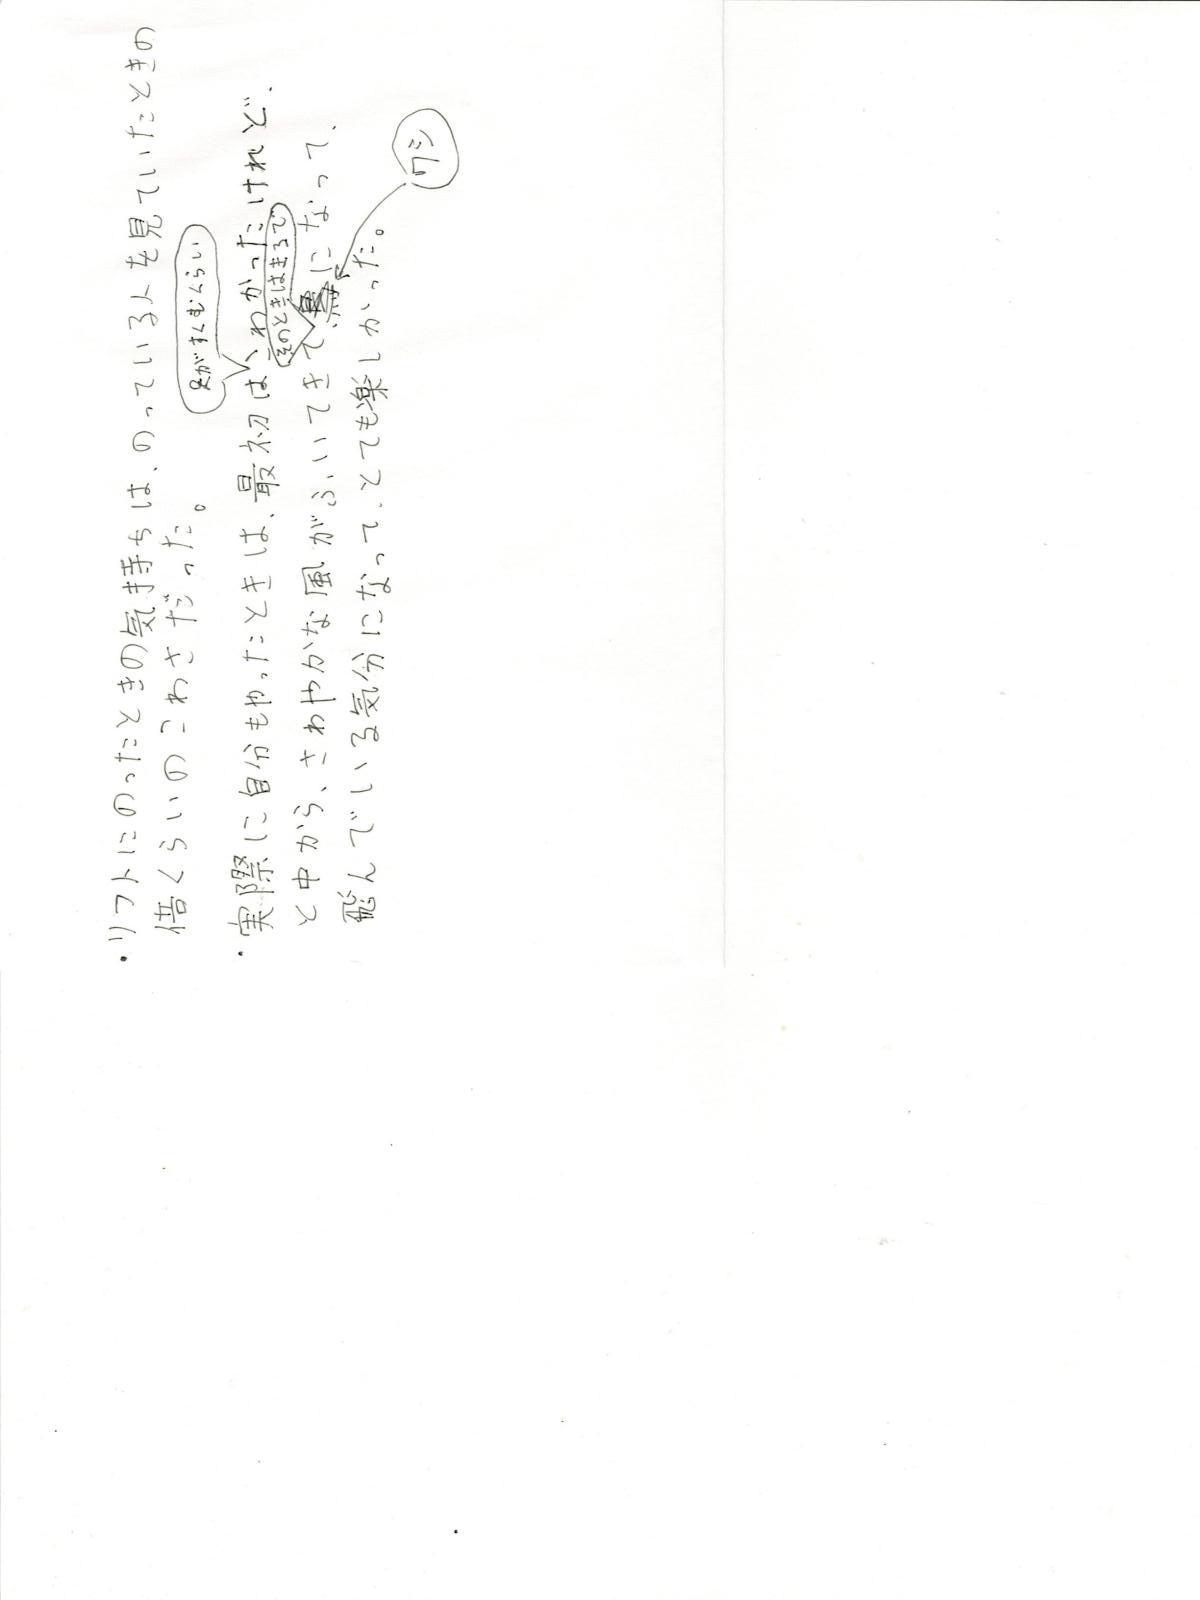 ・リフトにのったときの気持ちは、のっている人を見ていたときの
倍くらいのこわさだった。
足がすくむくらい
・実際に自分もやったときは、最初は、こわかったけれど、
そのときはまるで
と中から、さわやかな風がふいてきて鳥になって、
ワシ
飛んでいる気分になって、とても楽しかった。